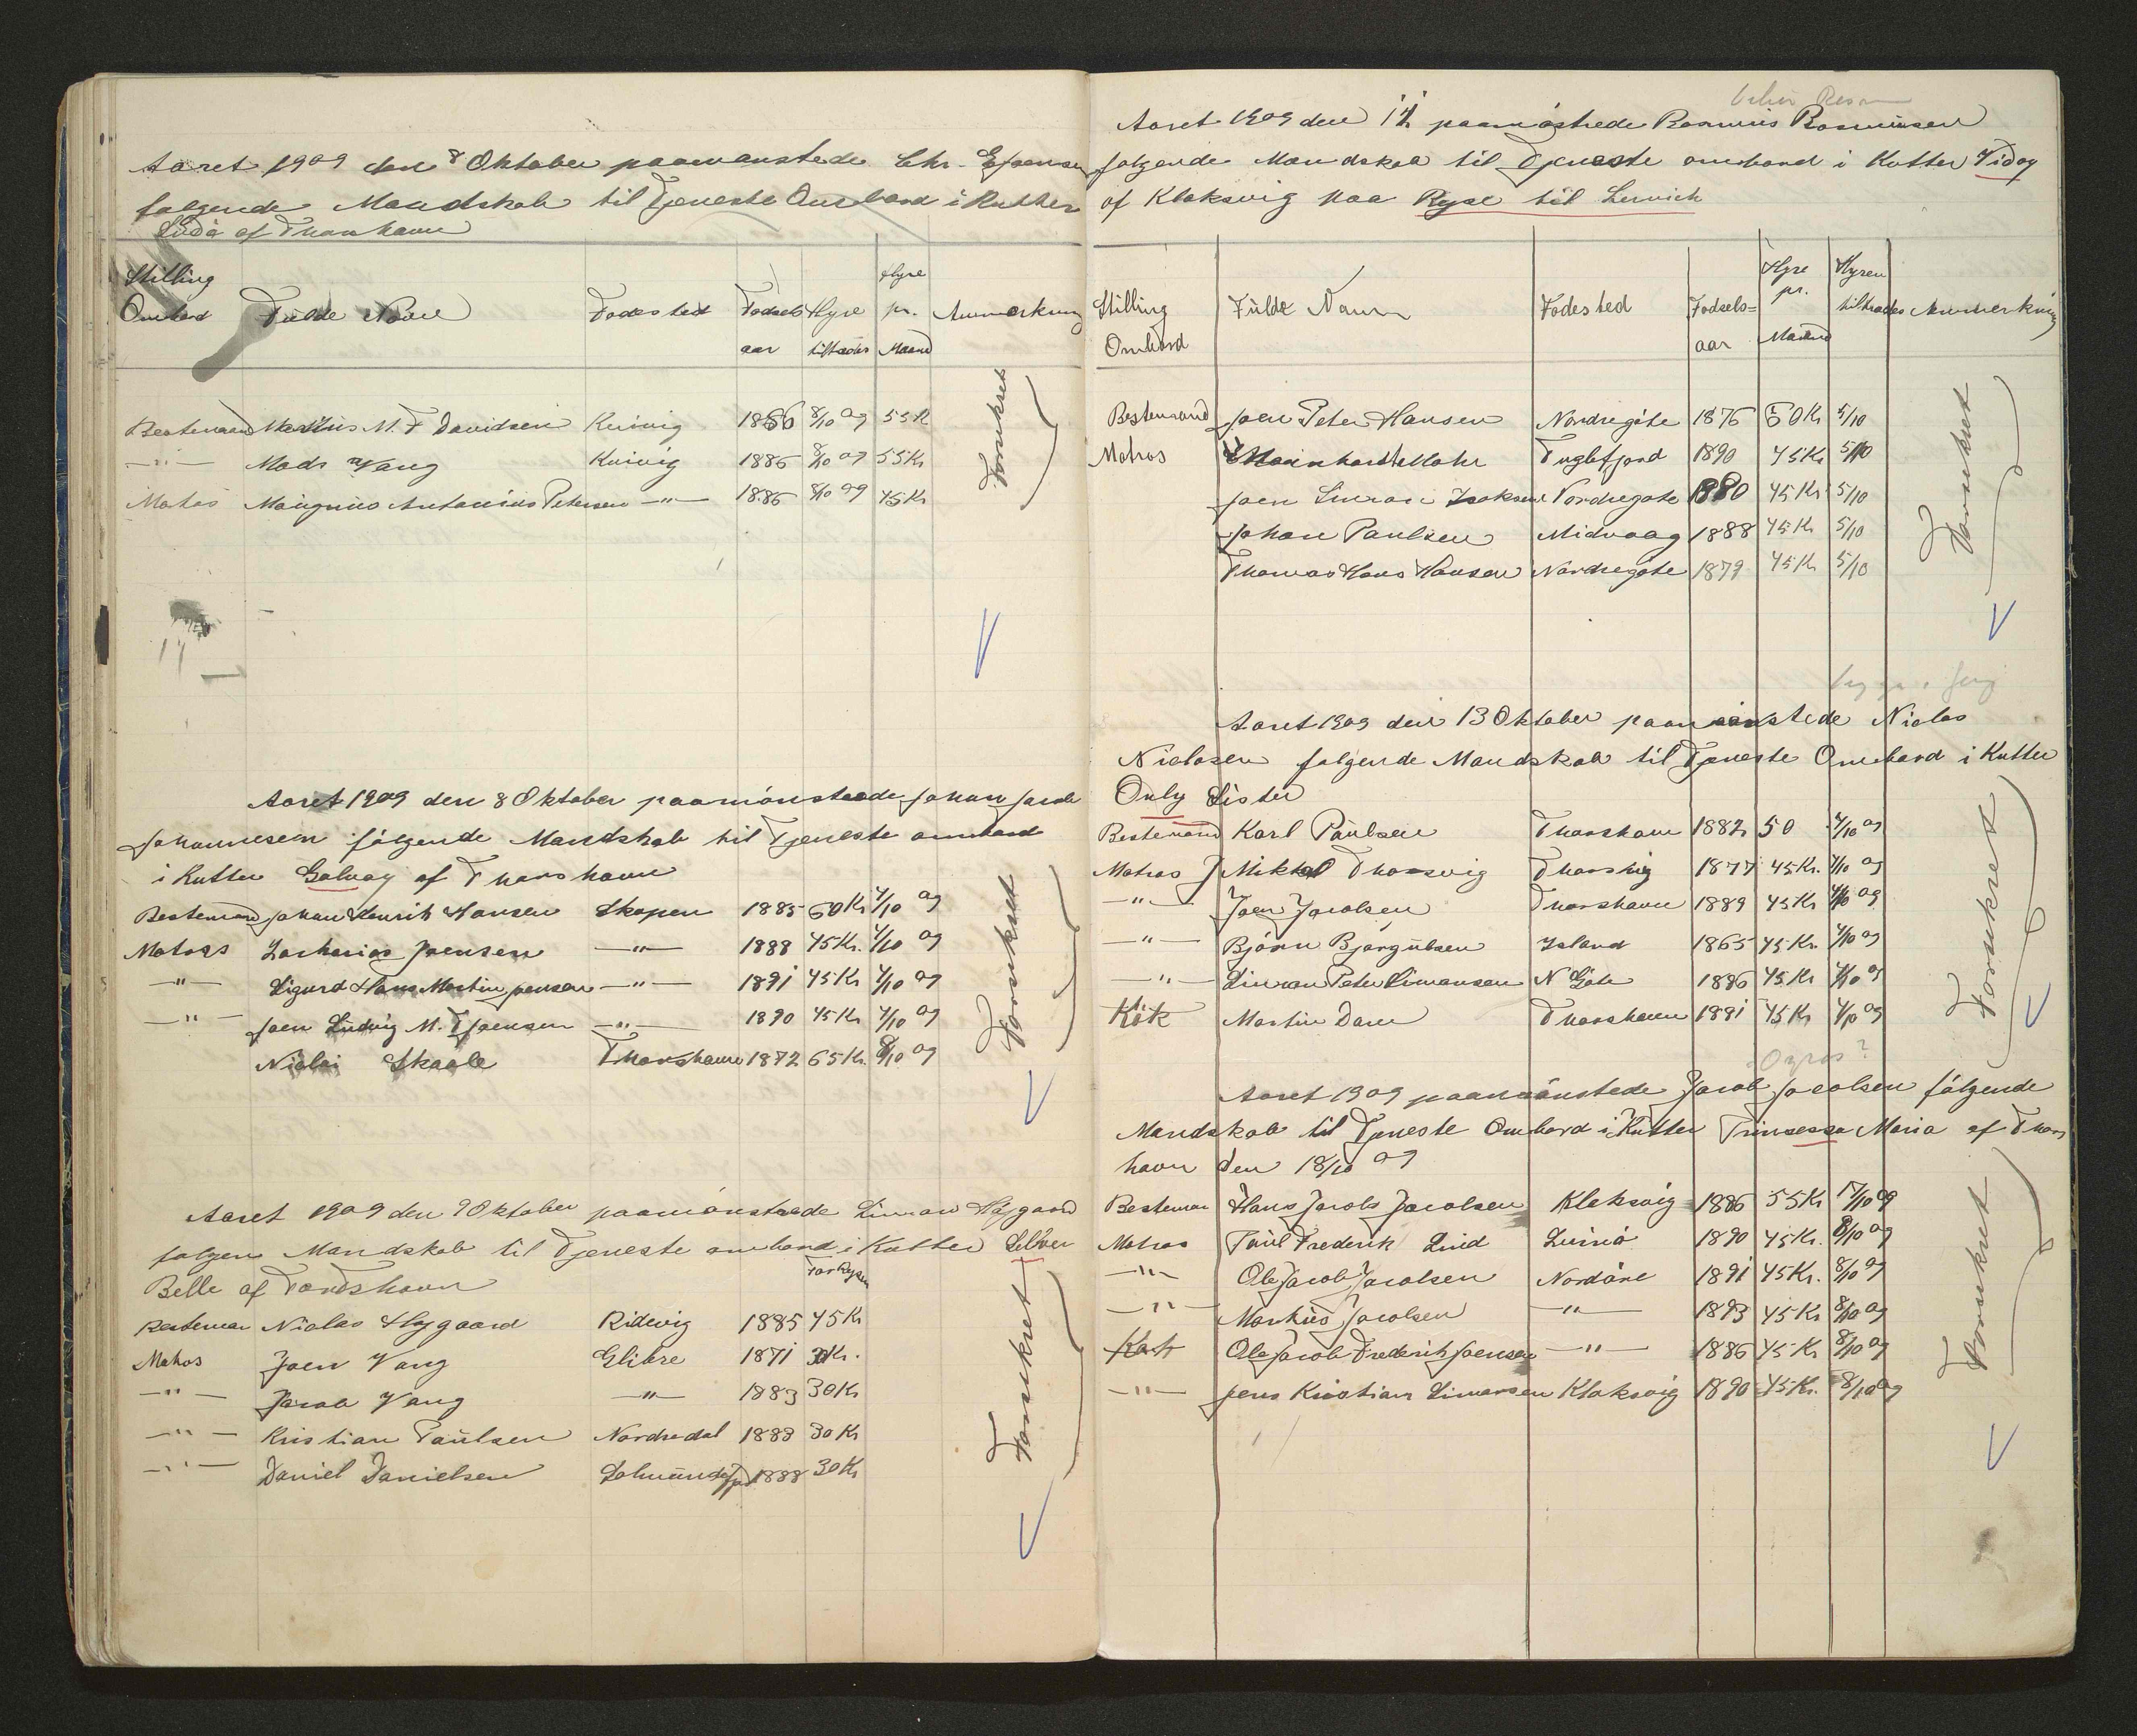 Aaret 1909 den 8 Oktober paamønstede Chr. Ejsensen
følgende Mandskab til Tjeneste Ombord i Kutter
af Thorshavn
Stilling Ombord Fulde Navn Fødested Fødselsaar Hyre tiltræder Hyre pr. Maaned Anmerkning
Bestemand M. F Davidsen Kvivig 1856 8/10 09 55 K
—"— Mads Vang Kvivig 1886 8/10 09 55 Kr
Matros Maugnus Antonius Petersen —"— 1886 8/10 09 45 Kr
Forsikret
Aaret 1909 den 8 Oktober paamønstrede Johan Jacob
Johannesen følgende Mandskab til Tjeneste ombord
i Kutter Galvay af Thorshavn
Bestemand Johan Henrik Hansen Skopen 1885 60 Kr 4/10 09
Matros Zacharias Joensen —"— 1888 45 Kr. 4/10 09
—"— Sigurd Hans Martin Joensen —"— 1891 45 Kr 4/10 09
—"— Joen Ludvig M. F Joensen —"— 1890 45 Kr 4/10 09
Niclai Skaale Thorshavn 1872 65 Kr. 8/10 09
Forsikret
Aaret 1909 den 9 Oktober paamønstrede Simon Høygaard
følgen Mandskab til Tjeneste ombord i Kutter Silver
Belle af Tordshavn
For Rejsen
Bestemar Niclas Høygaard Ritevig 1885 45 Kr
Matros Joen Vang Glibre 1871 30 Kr.
—"— Jacob Vang —"— 1883 30 Kr
—"— Kristian Paulsen Nordredal 1883 30 Kr
—"— Daniel Danielsen Salmundefjord 1888 30 Kr
Forsikret
Aaret 1909 den paamønstrede Rasmus Rasmussen
følgende Mandskab til Tjeneste ombord i Kutter Vidoy
af Klaksvig paa Rejse til Lervich
Stilling Ombord Fulde Navn Fødested Fødselsaar Hyre pr. Maaned Hyren tiltrædes Anmerkning
Bestemand Joen Peter Hansen Nordregøte 1876 60 Kr 5/10
Matros Mainhardt Mohr Fuglefjord 1890 45 Kr 5/10
Joen Simon Isaksen Nordregøte 1880 45 Kr 5/10
Johan Paulsen Midvaag 1888 45 Kr 5/10
Thomas Hans Hansen Nordregøte 1879 45 Kr 5/10
Forsikret
Aaret 1909 den 13 Oktober paamønstede Niclas
Niclasen følgende Mandskab til Tjeneste Ombord i Kutter
Only Sister
Bestemand Karl Paulsen Thorshavn 1882 50 4/10 09
Matros J Mikkal Thorsvig Thorsvig 1877 45 Kr. 4/10 09
—"— Joen Jacobsen Thorshavn 1889 45 Kr 4/10 09
—"— Bjørn Bjørgulsen Island 1865 45 Kr. 4/10 09
—"— Simon Peter Simonsen N Gøte 1886 45 Kr 4/10 09
Kok Martin Dam Thorshavn 1891 45 Kr 4/10 09
Forsikret
Ogros?
Aaret 1909 paamønstede Jacob Jacobsen følgende
Mandskab til Tjeneste Ombord i Kutter Prinsessa Maria af Thors
havn den 18/10 09
Bestemar Hans Jacob Jacobsen Klaksvig 1886 55 Kr 17/10 09
Matros Paul Frederik Lind 1890 45 Kr. 8/10 09
—"— Ole Jacob Jacobsen Nordøre 1891 45 Kr. 8/10 09
—"— Markus Jacobsen —"— 1893 45 Kr 8/10 09
Kok Ole Jacob Frederik Joensen —"— 1886 45 Kr 8/10 09
—"— Jens Kristian Simonsen Klaksvig 1890 45 Kr. 8/10 09
Forsikret